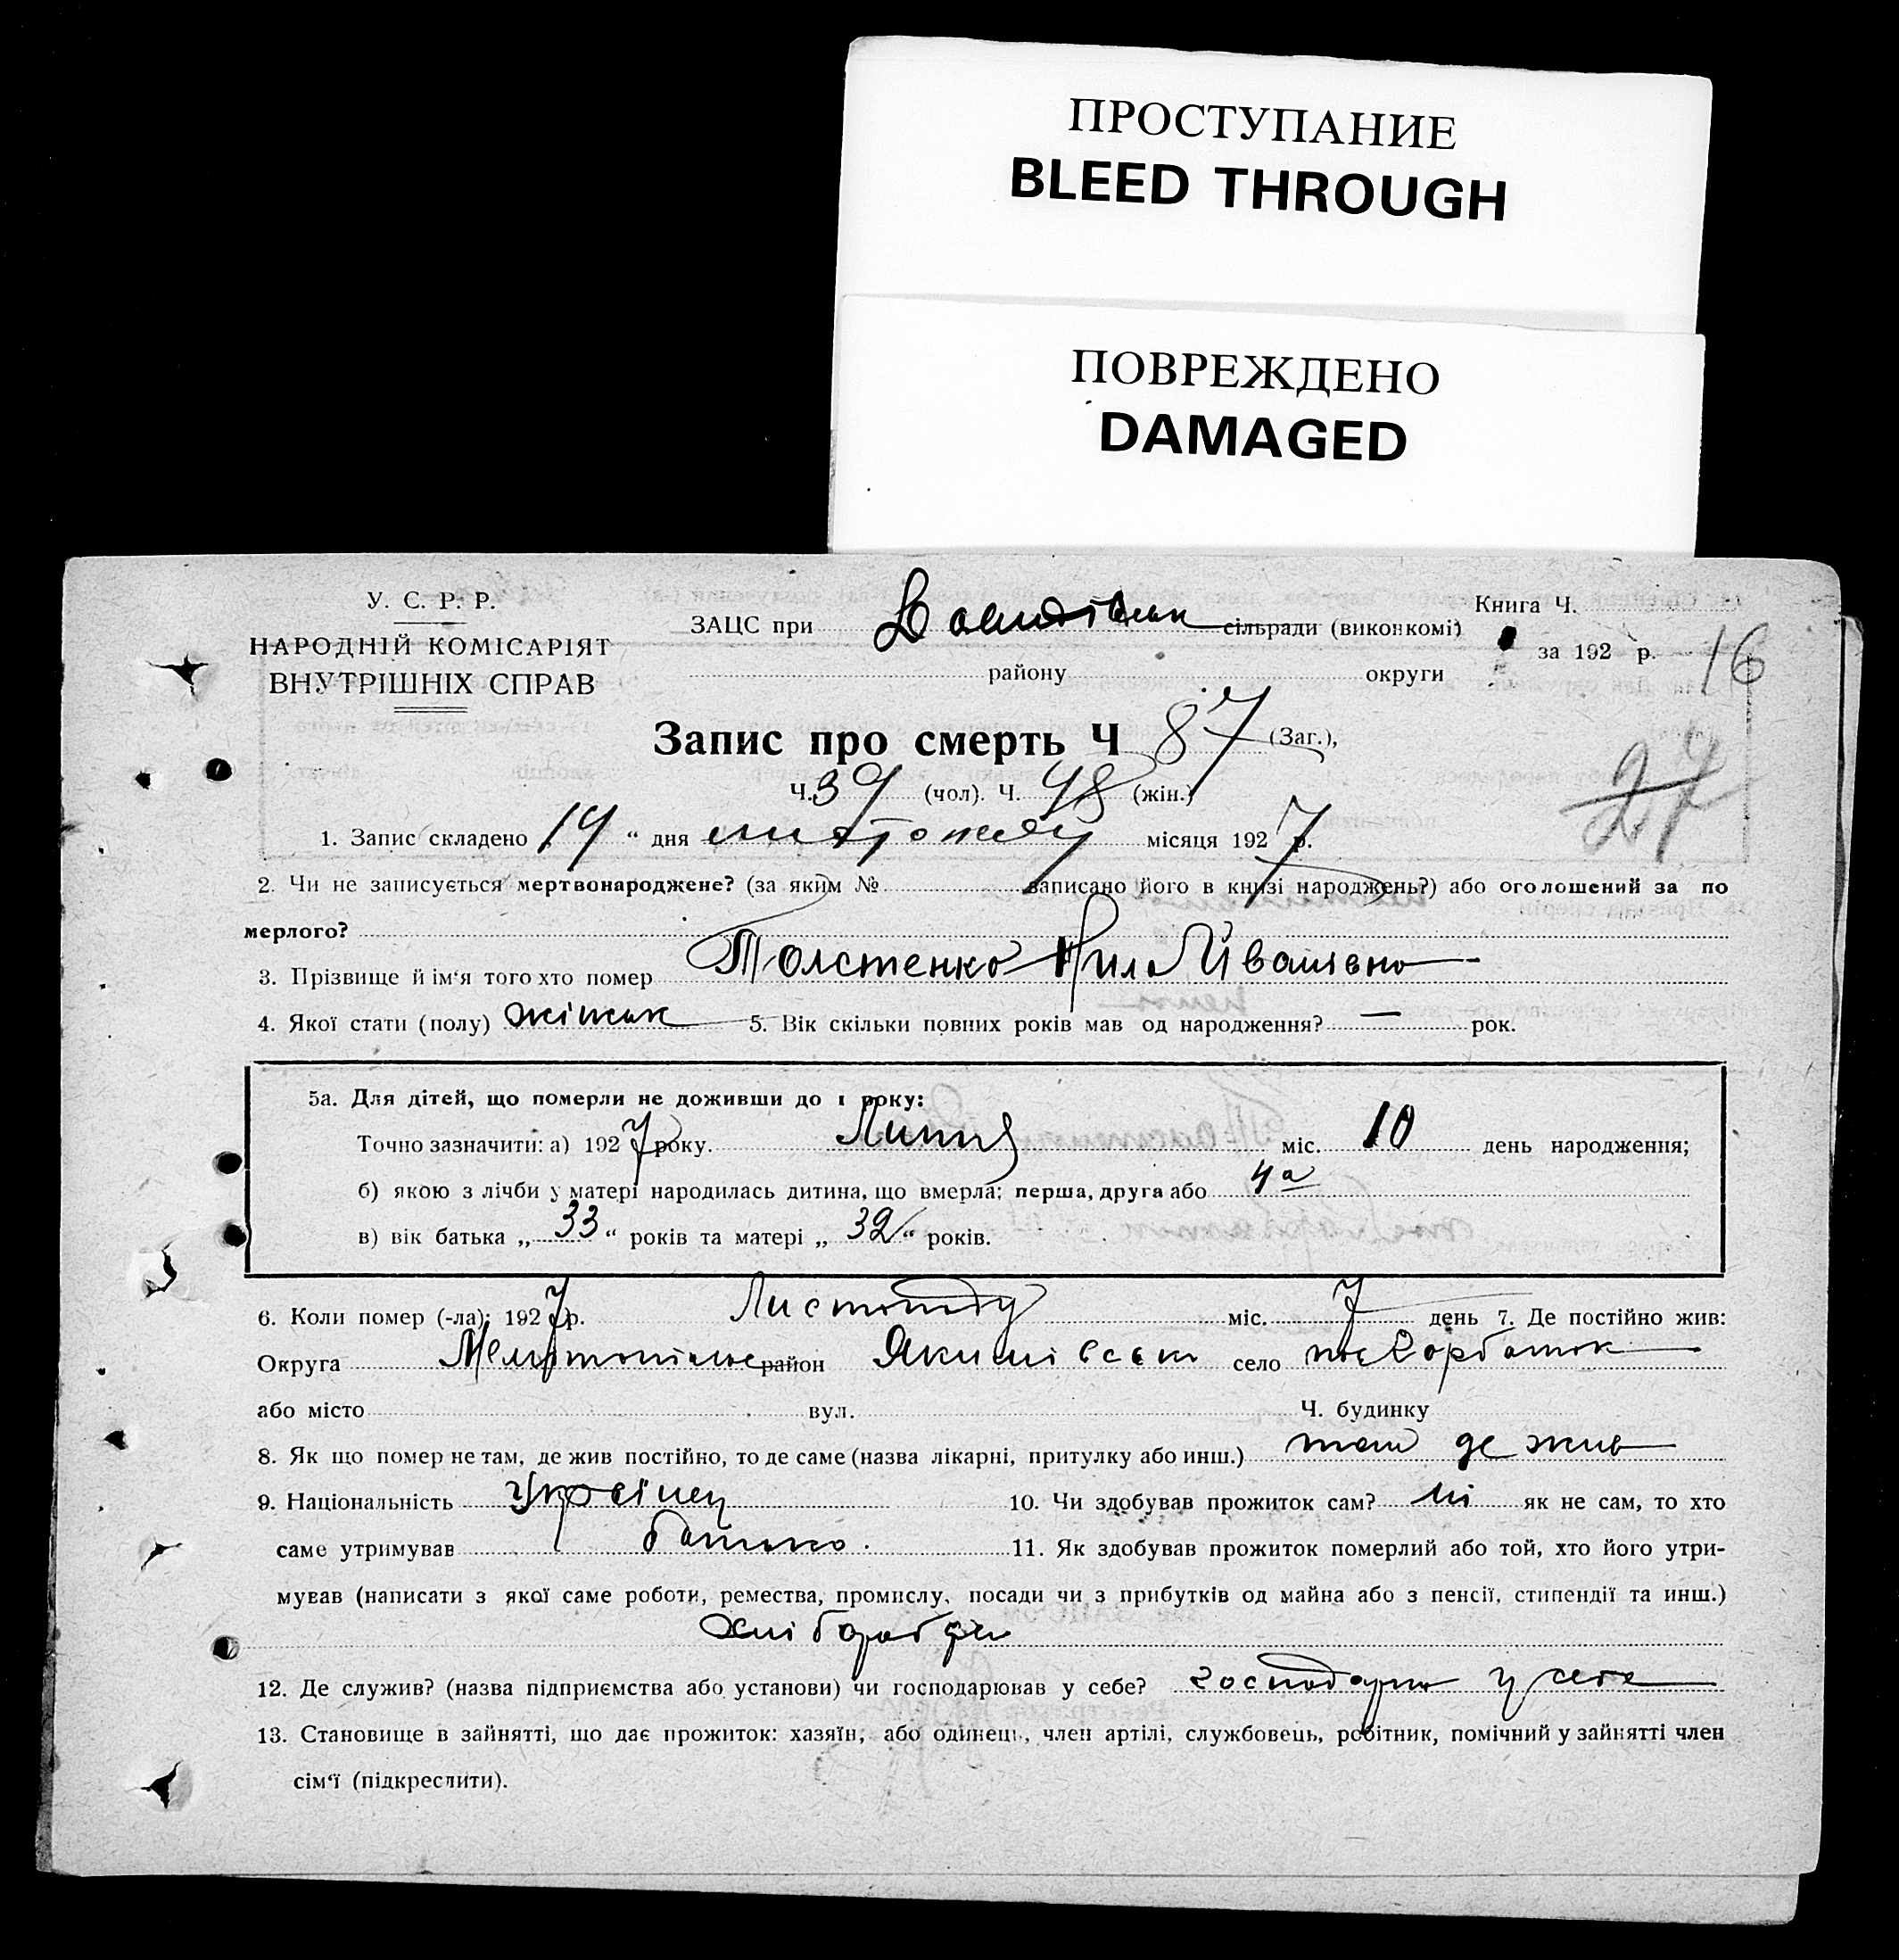 ПРОСТУПАНИЕ
BLEED THROUGH
ПОВРЕЖДЕНО
DAMAGED
У. С. Р. Р.
НАРОДНІЙ КОМІСАРІЯТ
ВНУТРІШНІХ СПРАВ
ЗАЦС при Давидівськ сільради (виконкомі)
району округи
Книга Ч.
за 192 р.
16
27
Запис про смерть Ч 87 (Заг.),
Ч. 39 (чол). Ч. 48 (жін.)
1. Запис складено 14 “ дня листопаду місяця 1927 р.
2. Чи не записується мертвонароджене? (за яким № записано його в книзі народжень?) або оголошений за по
мерлого?
3. Прізвище й ім‘я того хто помер Толстенко Іванівна
4. Якої стати (полу) жіноч 5. Вік скільки повних років мав од народження? — рок.
5а. Для дітей, що померли не доживши до 1 року:
Точно зазначити: а) 1927 року. Липня міс. 10 день народження;
б) якою з лічби у матері народилась дитина, що вмерла; перша, друга або 4а
в) вік батька „ 33 “ років та матері „ 32 “ років.
6. Коли помер (-ла): 1927 р. Листопаду міс. 7 день 7. Де постійно жив:
Округа Мелітопільськ район Якимівськ село
або місто вул. Ч. будинку
8. Як що помер не там, де жив постійно, то де саме (назва лікарні, притулку або инш.) там де жив
9. Національність українец 10. Чи здобував прожиток сам? ні як не сам, то хто
саме утримував батько. 11. Як здобував прожиток померлий або той, хто його утри-
мував (написати з якої саме роботи, ремества, промислу, посади чи з прибутків од майна або з пенсії, стипендії та инш.)
12. Де служив? (назва підприємства або установи) чи господарював у себе? у себе
13. Становище в зайнятті, що дає прожиток: хазяїн, або одинець, член артілі, службовець, робітник, помічний у зайнятті член
сім‘ї (підкреслити).